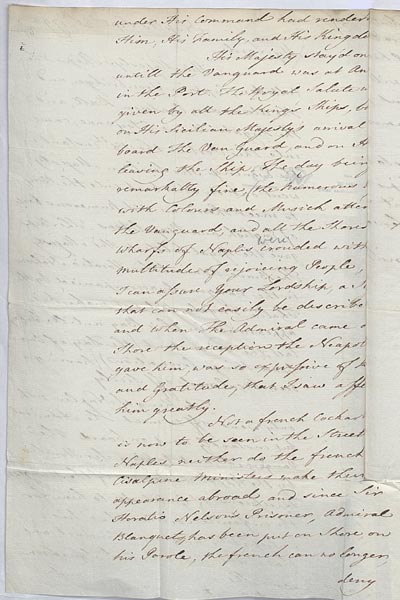 under His Command had render
Him, His Family, and His Kingdo
His Majesty stay'd on
untill the Vanguard was at An
in the Port. The Royal Salute w
given by all the King's Ships, b
on His Sicilian Majesty's arrival
board The Vanguard and on
leaving the Ship. The day being
remarkably fine, the numerous
with Colours and Musick atte
the Vanguard, and all the Shores
Wharfs of Naples crouded with
were
multitude of rejoicing People,
I can assure Your Lordship, a
that can not easily be describe
and when The Admiral came
Shore the reception the Neapol
gave him, was so expressive of
and Gratitude, that I saw aff
him greatly.
Not a french Cockar
is now to be seen in the Street
Naples neither do the french
Cisalpine Ministers make their
appearance abroad, and since Sir
Horatio Nelson's Prisoner, Admiral
Blanquet, has been put on Shore, on
his Parole, the french can no longer
deny